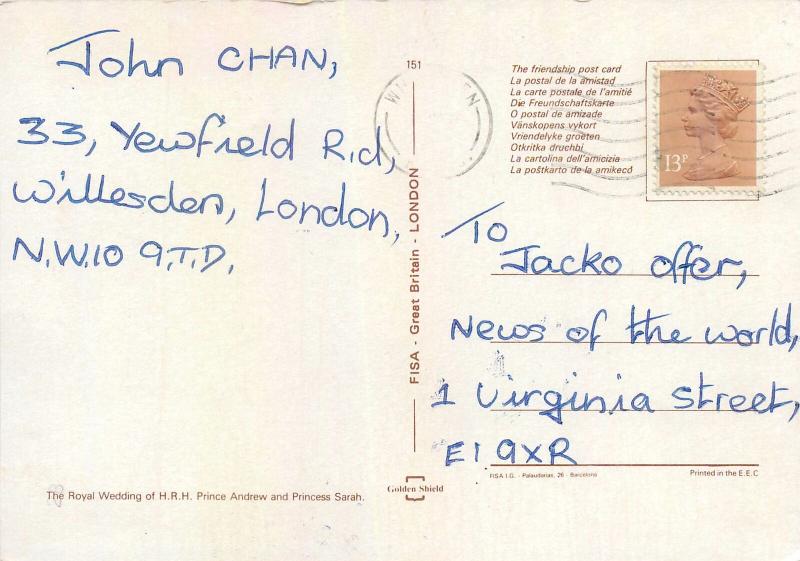 John CHAN,
33, Yewfield R.d,
Willesden, London,
N.W.10 9.T.D,
The Royal Wedding of H.R.H. Prince Andrew and Princess Sarah.
151
FISA - Great Britain - LONDON
Golden Shield
The friendship post card
La postal de la amistad
La carte postale de l'amitié
Die Freundschaftskarte
O postal de amizade
Vänskopens vykort
Vriendelyke groeten
Otkritka druchbi
La cartolina dell'amicizia
La poŝtkarto de la amikecó
13P
To
Jacko offer,
News of the world,
1 Virginia street,
E1 9XR
FISA I.G. - Palaudarias, 26 - Barcelona
Printed in the E.E.C